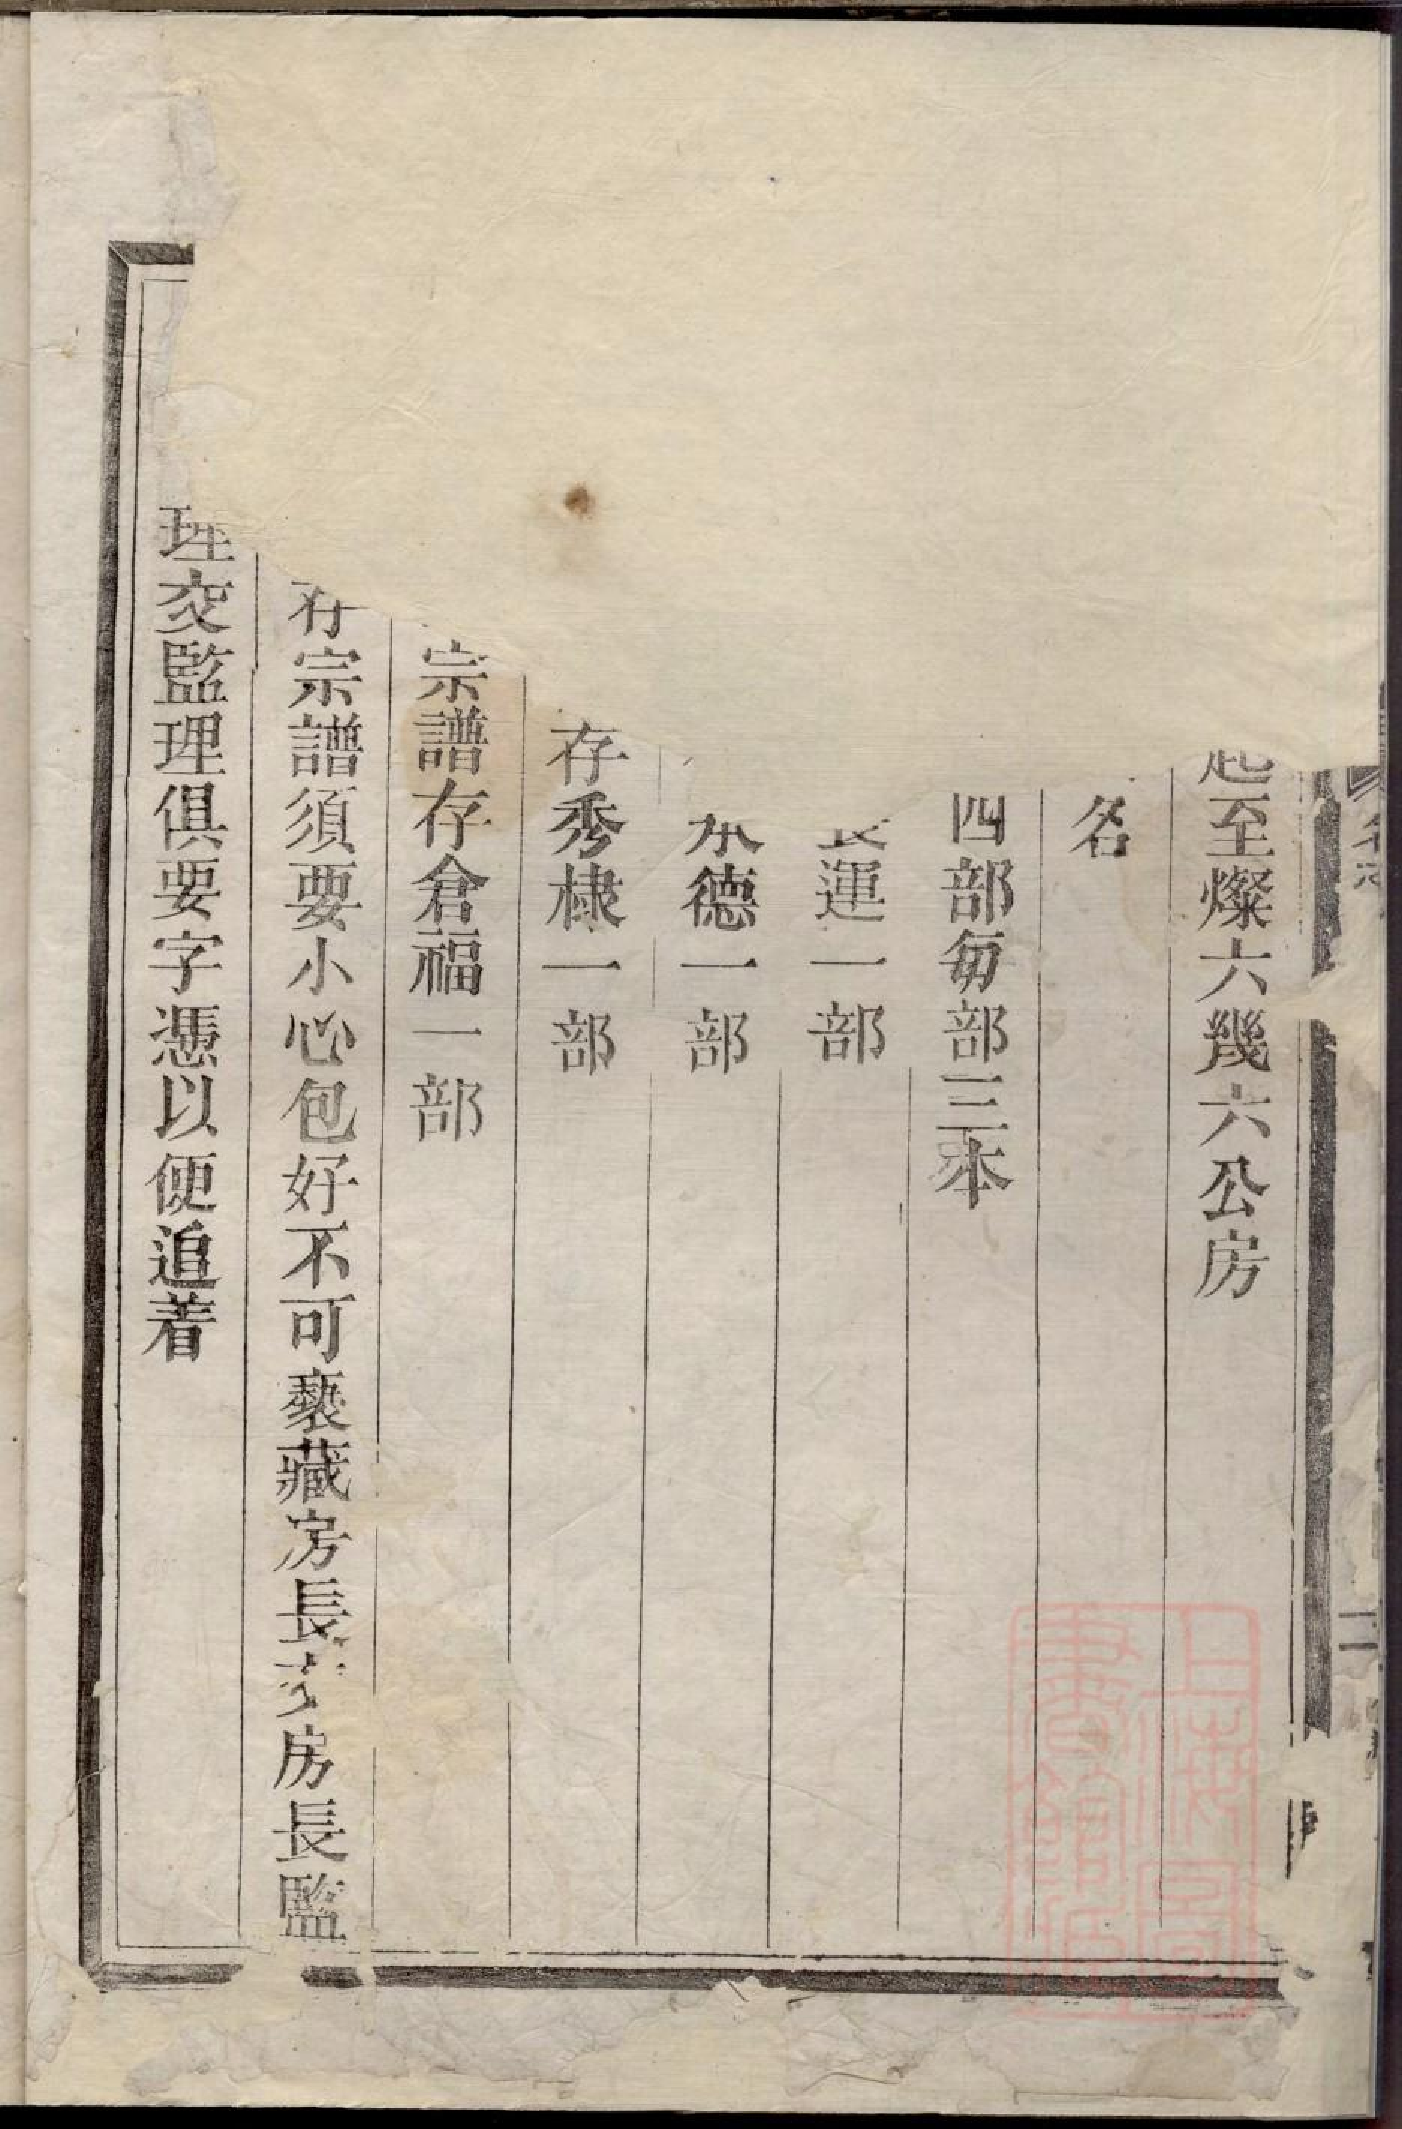 起至燦六幾六公房
名
四部每部三本
長運一部
永德一部
存秀棣一部
宗譜存倉福一部
存宗譜須要小心包好不可褻藏房長交房長監
理交監理俱要字憑以便追着
二
上海圖書館藏